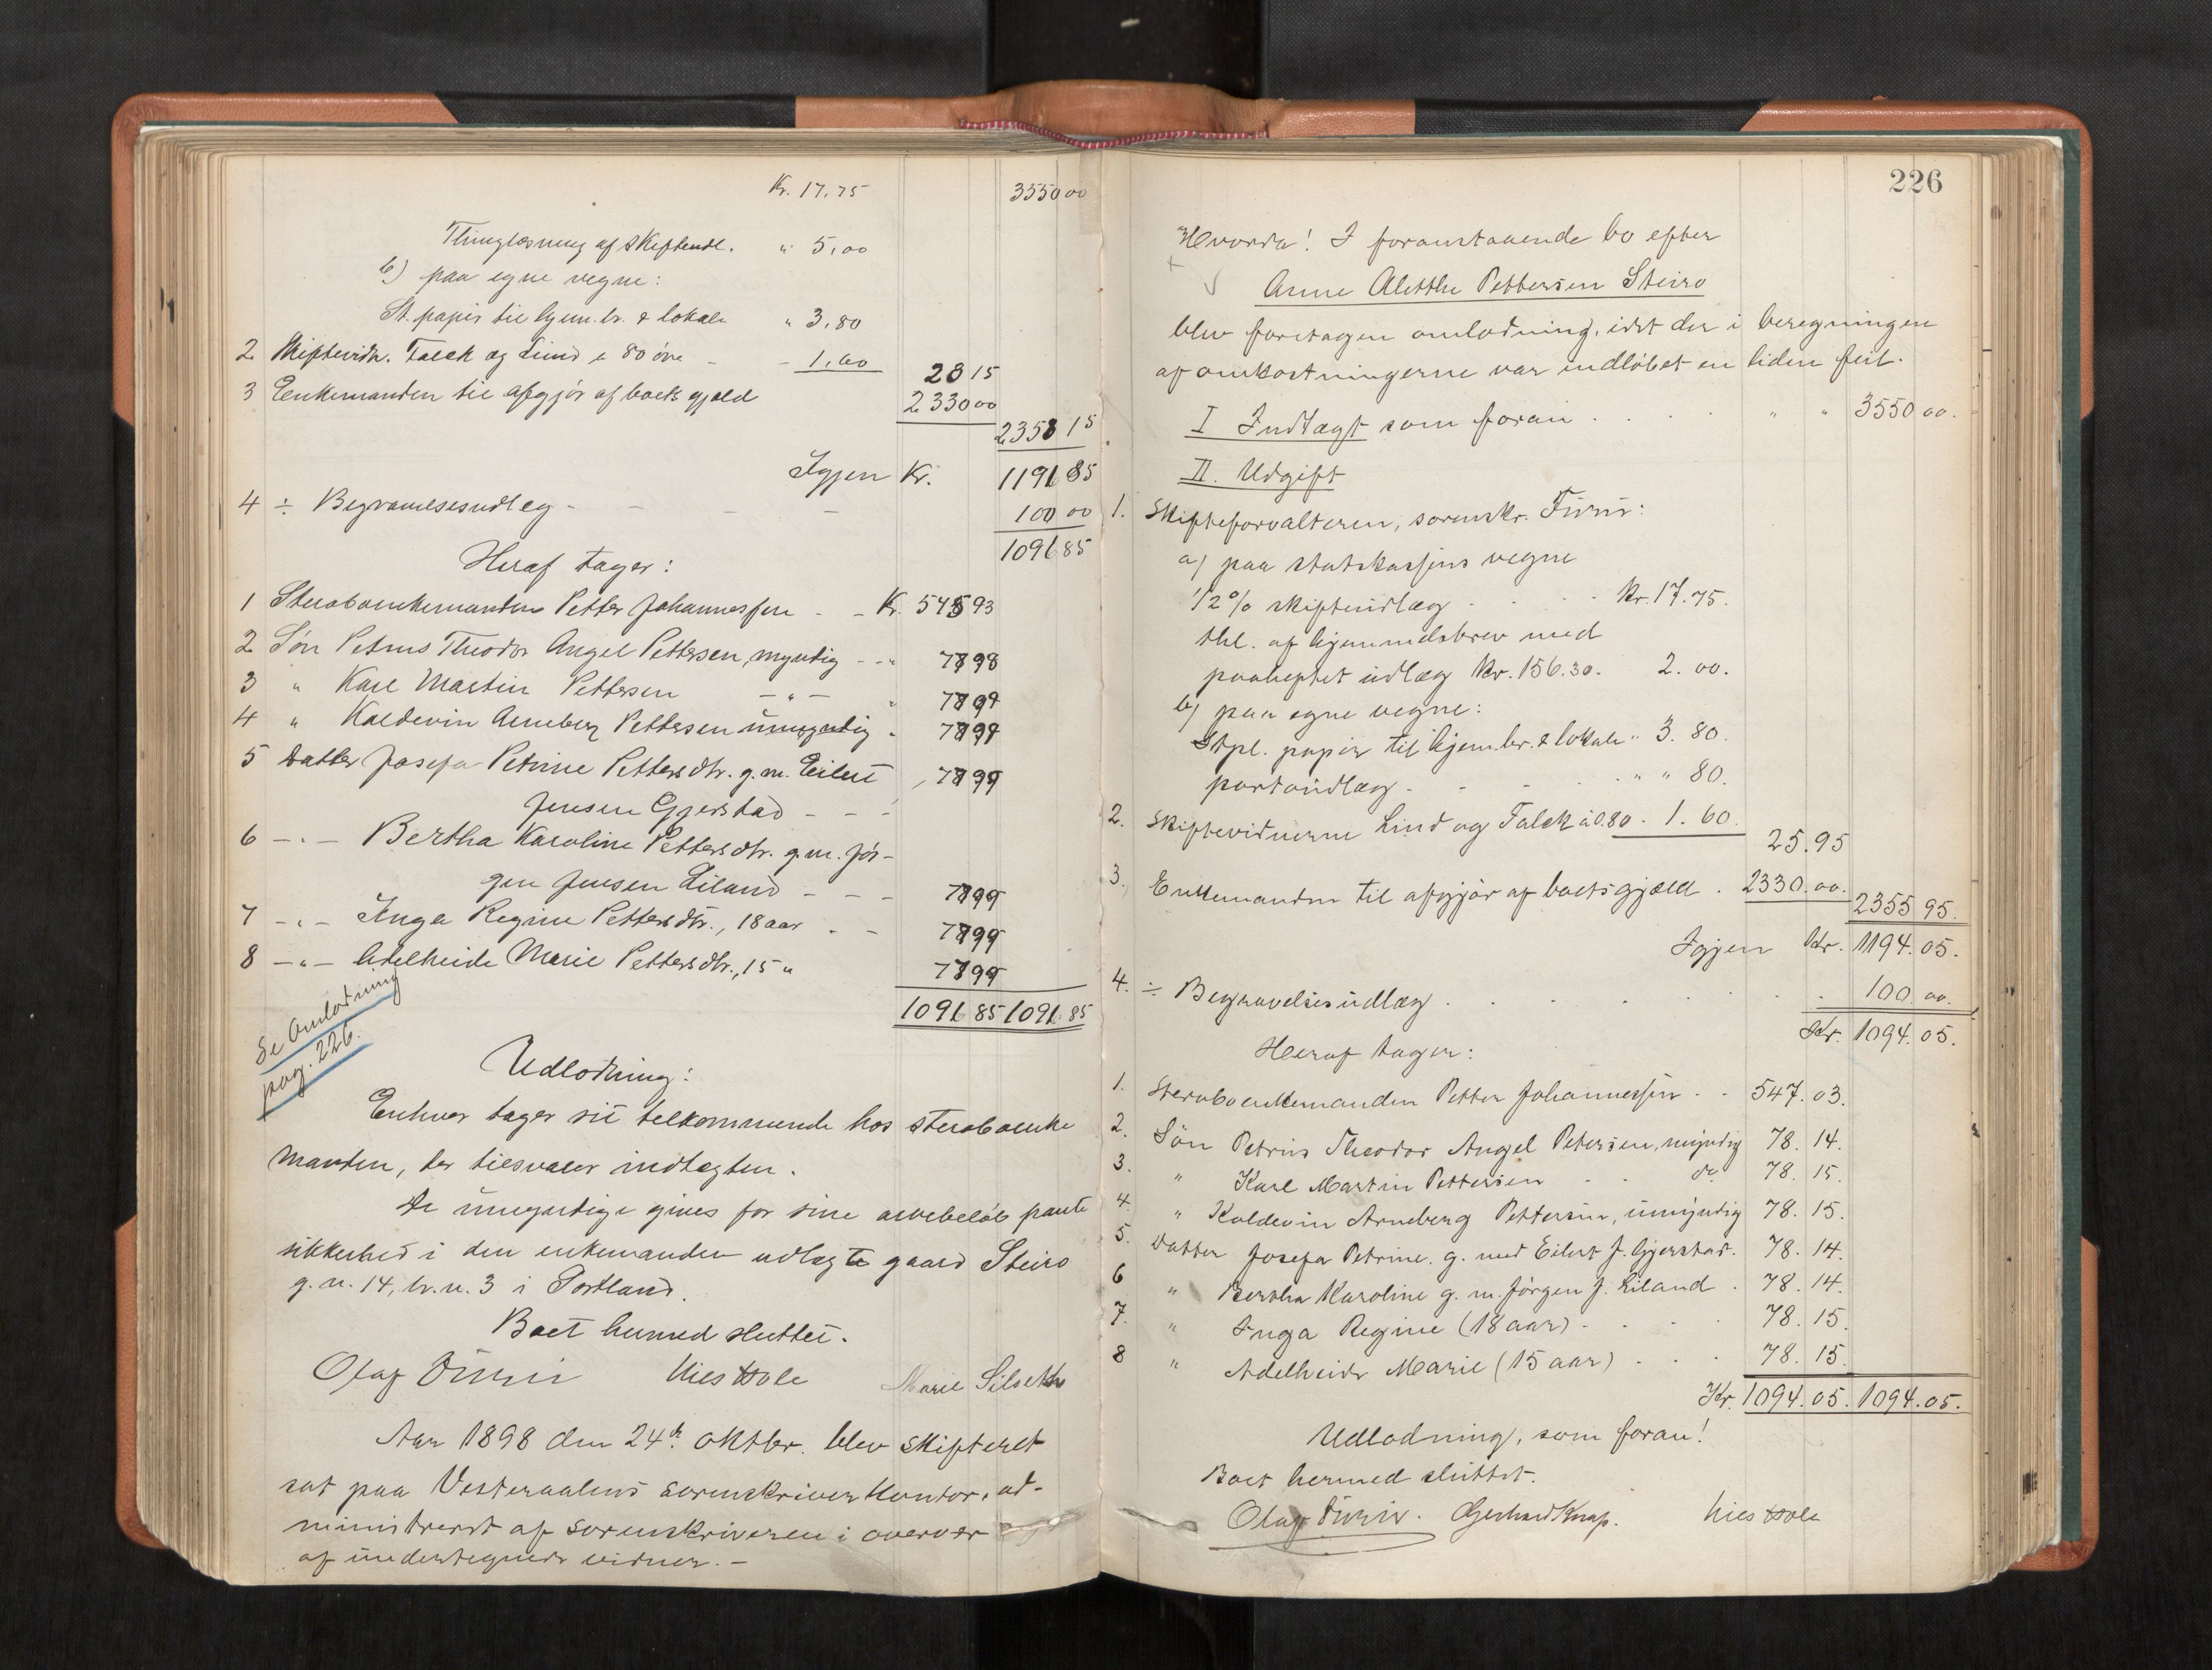 Kr. 17,75 3550 00
Thinglæsning af skiftendl. " 5,00
b) paa egne vegne:
St. papir til hjem.br. & lokale " 3,80
2 Skiftevidn. Falck og Lind a 80 öre - - 1,60 28 15
3 Enkemanden til afgjör af boets gjæld 2330 00
2358 15
Igjen Kr. 1191 85
4 ÷ Begravelsesudlæg - - - - 100 00
1091 85
Heraf tager:
1 Sterboenkemanden Petter Johannessen - - Kr. 545 93
2 Sön Petrus Theodor Angel Pettersen, myndig - - " 77 98
3 " Karl Martin Pettersen - " - " 77 99
4 " Koldevin Arneberg Pettersen umyndig " 77 99
5 Datter Josefa Petrine Pettersdtr. g. m. Eilert 77 99
Jensen Gjerstad - - -
6 - " - Bertha Karoline Pettersdtr. g. m. Jör-
gen Jensen Liland - - - 77 99
7 - " - Inga Regine Pettersdtr., 18 aar - - 77 99
8 - " - Adelheide Marie Pettersdtr., 15 " 77 99
1091 85 1091 85
Se Omlodning
pag. 226.
Udlodning:
Enhver tager sit tilkommende hos sterboenke
manden, der tilsvarer indtægten.
De umyndige gives for sine arvebeløb pante
sikkerhed i den enkemanden udlagte gaard Steiro
g. n. 14, br. n. 3 i Sortland.
Boet hermed sluttet.
Olaf Furu Nils Hole Marie Silseth
Aar 1898 den 24de oktbr. blev skifteret
sat paa Vesteraalens sorenskriverkontor, ad-
ministreret af sorenskriveren i overvær
af undertegnede vidner. -
226
Hvorda! I foranstaaende bo efter
Anne Alethe Pettersen Steiro
blev foretagen omlodning, idet der i beregningen
af omkostningerne var indløbet en liden feil.
I Indtægt som foran . . . " " 3550 00.
II. Udgift
1. Skifteforvalteren, sorenskr. Furu:
a) paa statskassens vegne
1/2 % skifteudlæg . . . Kr. 17.75.
thl. af hjemmelsbrev med
paaheftet udlæg Kr. 156.30. 2.00.
b) paa egne vegne:
Stpl. papir til hjem.br. & lokale " 3.80.
portoudlæg . . . " " 80.
2. Skiftevidnerne Lind og Falck à 0.80 . 1.60. 25.95
3. Enkemanden til afgjör af boets gjæld . 2330.00. 2355 95.
Igjen Kr. 1194.05.
4. ÷ Begravelsesudlæg . . . . . 100.00.
Kr. 1094.05.
Heraf tager:
1. Sterboenkemanden Petter Johannessen . . 547.03.
2. Sön Petrus Theodor Angel Petersen, myndig 78.14.
3. " Karl Martin Pettersen . . do 78.15.
4. " Koldevin Arneberg Pettersen, umyndig 78.15.
5. Datter Josefa Petrine. g. med Eilert J. Gjerstad. 78.14.
6 " Bertha Karoline g. m. Jörgen J. Liland . 78.14.
7. " Inga Regine (18 aar) . . . . 78.15.
8 " Adelheide Marie (15 aar) . . . 78.15.
Kr. 1094.05. 1094.05.
Udlodning, som foran!
Boet hermed sluttet.
Olaf Furu. Gerhard Knap. Nils Hole